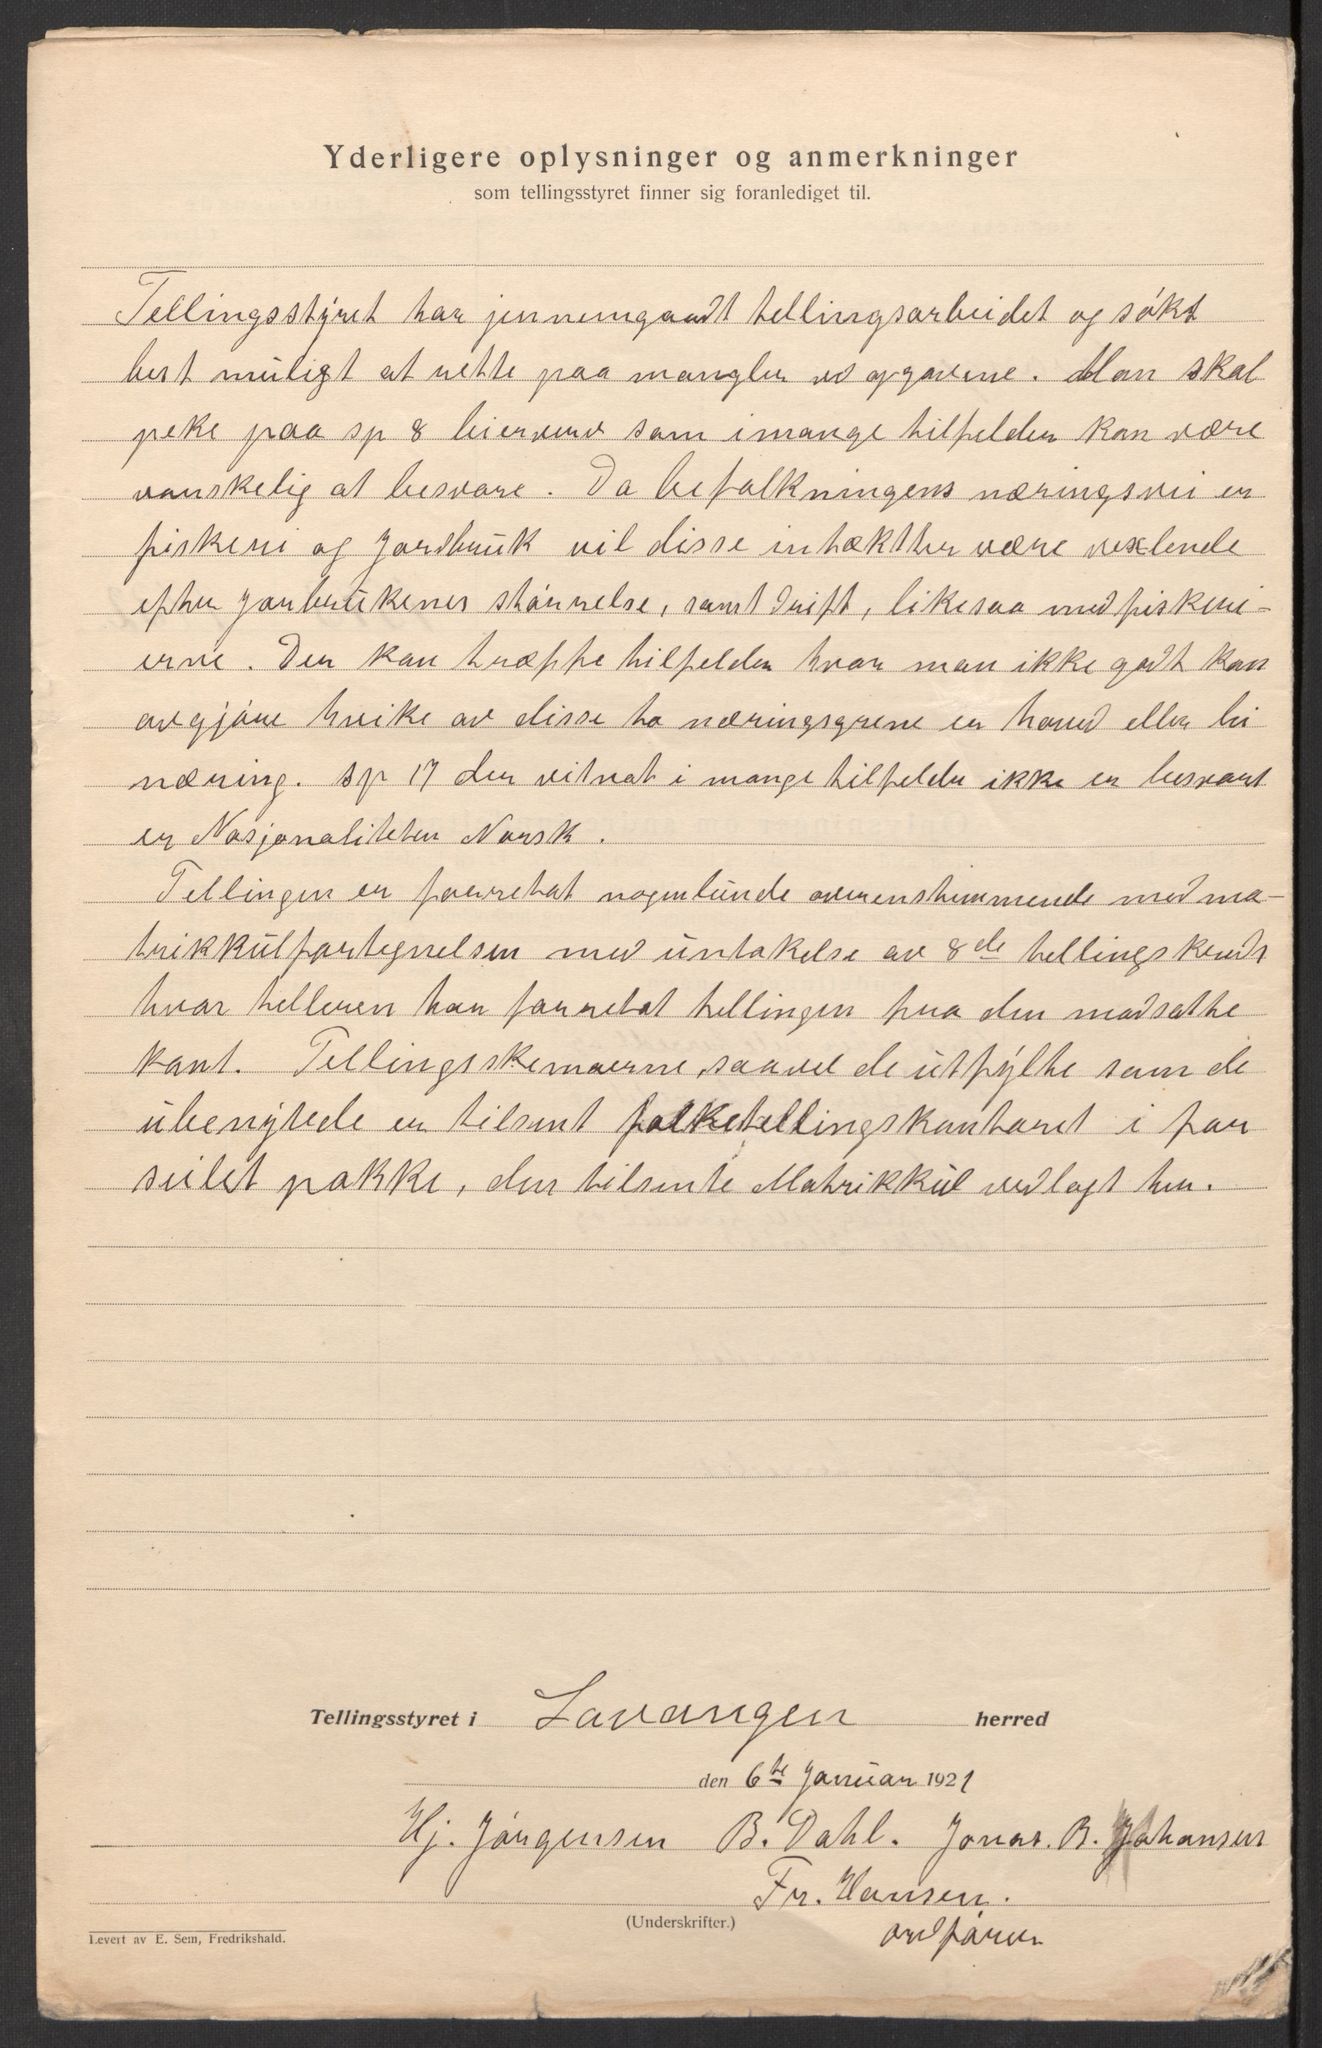 Yderligere oplysninger og anmerkninger
som tellingsstyret finner sig foranlediget til.
Tellingsstyret har jennemgaadt tellingsarbeidet og søkt
best muligt at rette paa mangler ved opgavene. Man skal
peke paa sp 8 bierverv som i mange tilfelder kan være
vanskelig at besvare. Da befolkningens næringsvei er
fiskeri og Jordbruk vil disse intækter være vexlende
efter Jorbrukenes størrelse, samt drift, likesaa med fiskeri-
erne. Der kan træffe tilfelder hvor man ikke godt kan
avgjøre hvike av disse to næringsgrene er hoved eller bi
næring. sp 17 der vitvat i mange tilfelder ikke er besvart
er Nasjonaliteten Norsk.
Tellingen er foerretat nogenlunde overenstemmende med ma-
trikkulfortegnelsen med untakelse av 8de tellingskreds
hvor telleren har forretat tellingen fra den modsatte
kant. Tellingsskemaerne, saavel de utfylte som de
ubenytede er tilsent folketellingskontoret i for
seilet pakke, den tilsente Matrikkul vedlagt her.
Tellingsstyret i Lavangen herred
den 6te Januar 1921
Hj. Jørgensen B. Dahl. Jonas. B. Johansen
Fr. Hansen.
(Underskrifter.)
ordfører
Levert av E. Sem, Fredrikshald.